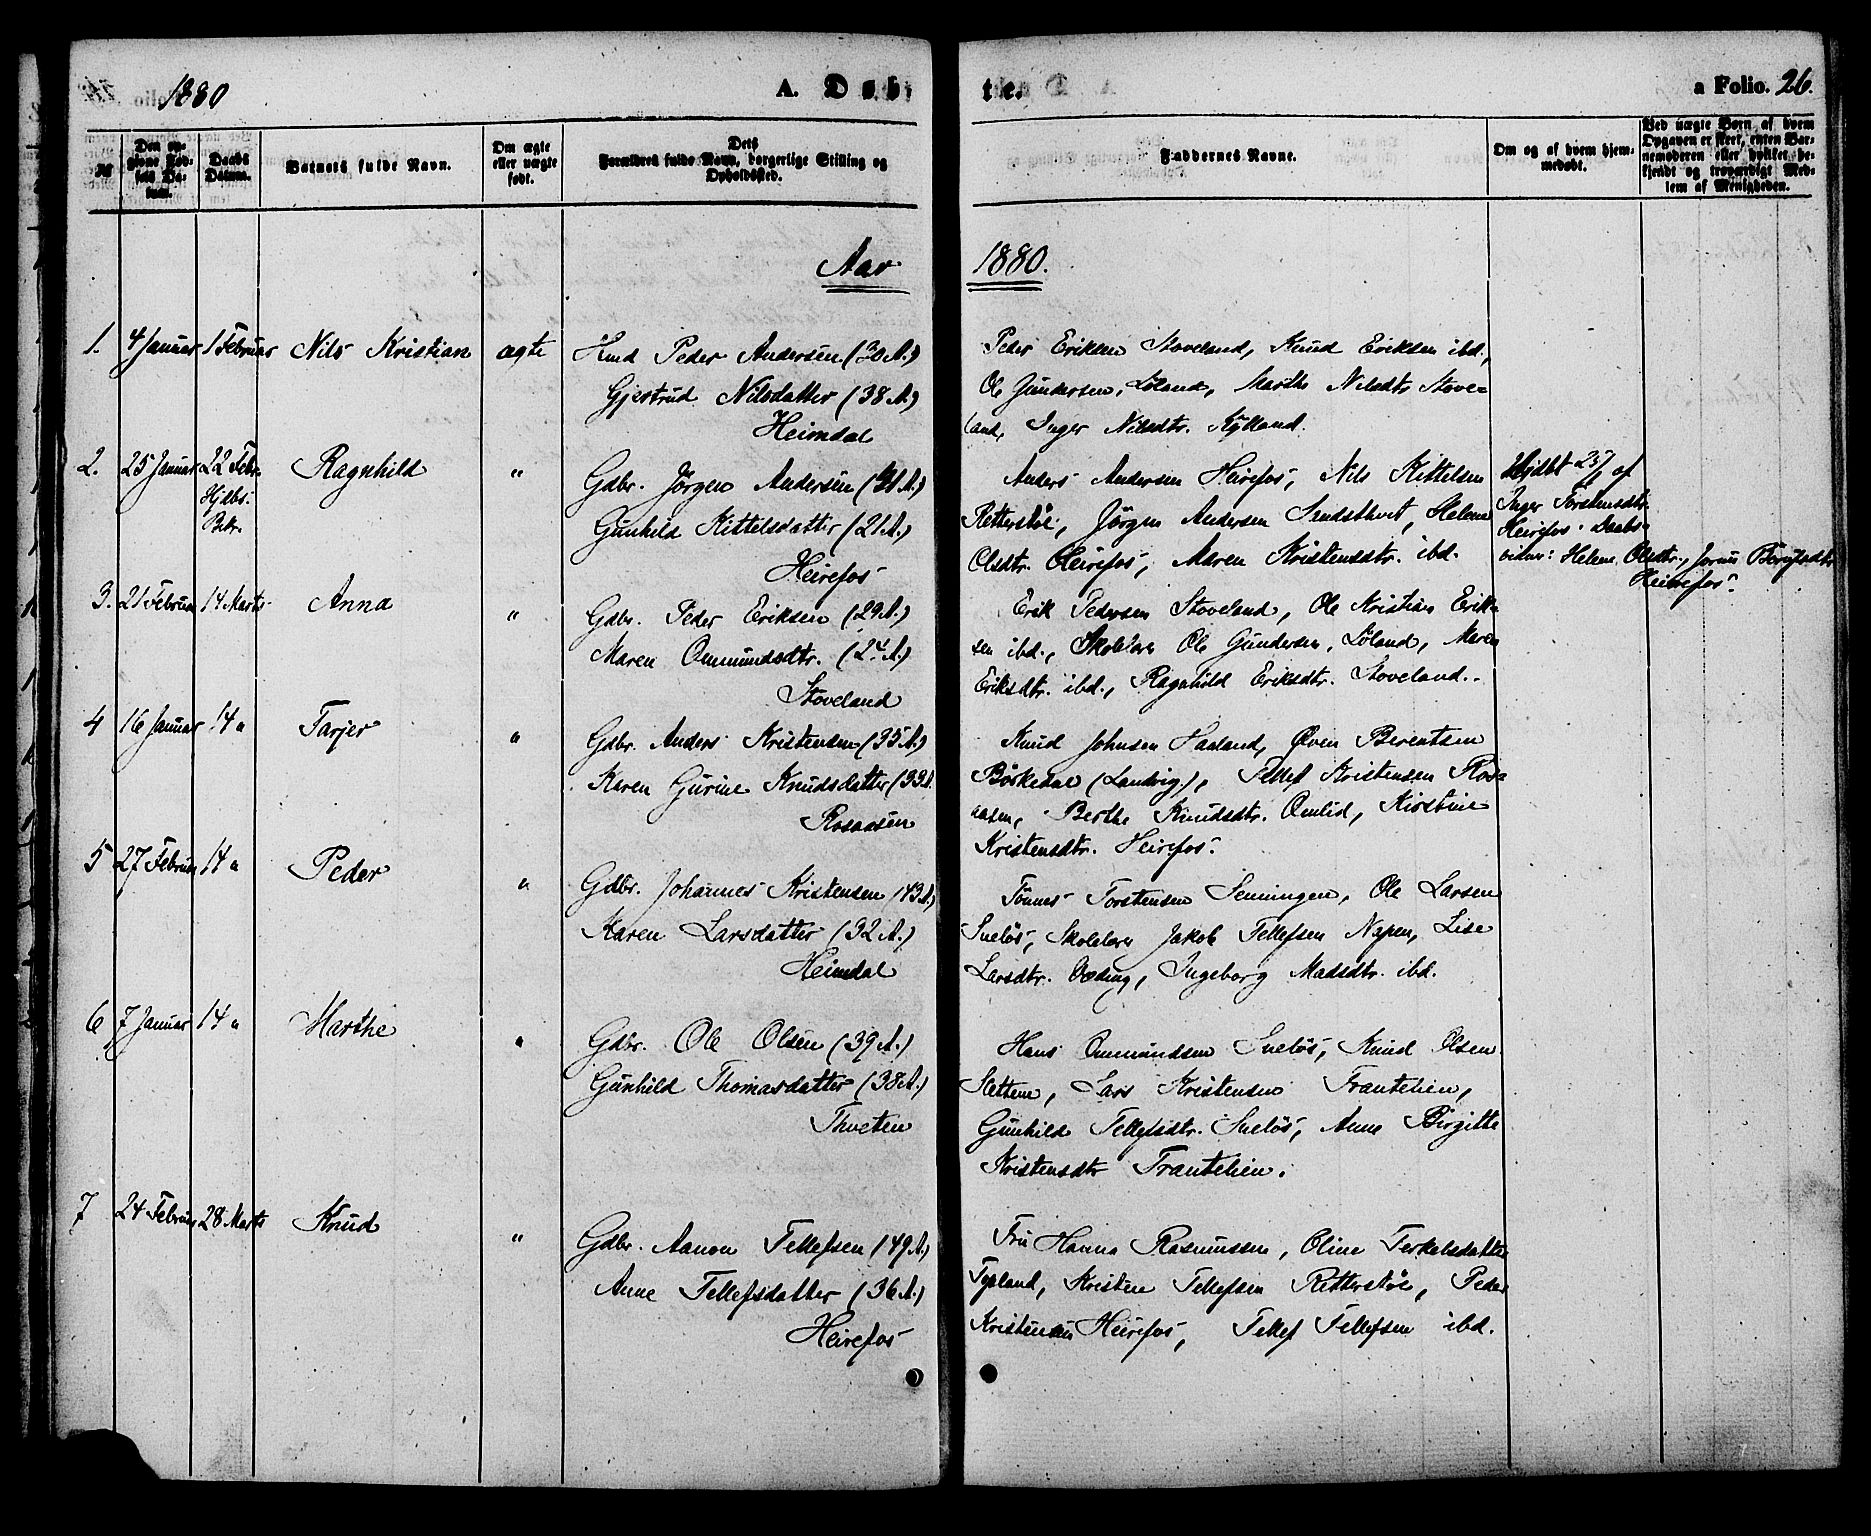 1880
A. Døb-
te.
a Folio. 26.
№
Den op-
givne Fød-
sels Da-
tum.
Daabs
Datum.
Barnets fulde Navn.
Om ægte
eller uægte
født.
Dets
Forældres fulde Navn, borgerlige Stilling og
Opholdssted.
Faddernes Navne.
Om og af hvem hjem-
medøbt.
Ved uægte Børn af hvem
Opgaven er skeet, enten Bar-
nemoderen eller hvilket be-
kjendt og troværdigt Med-
lem af Menigheden.
Aar
1880.
1. 4 Januar 1 Februar Nils Kristian ægte Hmd Peder Andersen (30 A.)
Gjertrud Nilsdatter (38 A.)
Heimdal
Peder Eriksen Stoveland, Knud Eriksen ibd.,
Ole Gundersen, Løland, Marthe Nilsdtr Stove-
land, Inger Nilsdtr.
2. 25 Januar 22 Febr. Ragnhild " Gdbr. Jørgen Andersen
Hjdbs.
Bekr.
Gunhild Kittelsdatter (21 A.)
Heirefos
Anders Andersen Heirefos, Nils Kittelsen
Retterstøl, Jørgen Andersen Sandsthvet, Helene
Olsdtr. Heirefos, Maren Kristensdtr. ibd.
Hjdbt 25/1 af
Inger Torstensdtr.
Heirefos. Daabs-
vidner: Helene Olsdtr.,
Heirefos.
3. 21 Februar 14 Marts Anna " Gdbr. Peder Eriksen (29 A.)
Maren Ommundsdtr. (24 A.)
Stoveland
Erik Pedersen Stoveland, Ole Kristian Erik-
sen ibd., Skolelærer Ole Gundersen, Løland, Maren
Eriksdtr. ibd., Ragnhild Eriksdtr. Stoveland.
4 16 Januar 14 " Tarjer " Gdbr. Anders Kristensen (35 A.)
Karen Gurine Knudsdatter (33 A.
Rosaasen
Knud Johnsen Haaland, Øven Berentsen
Børkedal (Landvig), Tellef Kristensen Ros-
aasen, Berthe Knudsdtr. Omlid, Kirstine
Kristensdtr. Heirefos.
5 27 Februar 14 " Peder " Gdbr. Johannes Kristensen (43 A.)
Karen Larsdatter (32 A.)
Heimdal
Tønnes Torstensen Senningen, Ole Larsen
Sneløs, Skolelærer Jakob Tellefsen Napen, Lise
Larsdtr. Oveding, Ingeborg Madsdtr. ibd.
6 7 Januar 14 " Marthe " Gdbr. Ole Olsen (39 A.)
Gunhild Thomasdatter (38 A.)
Thveten
Hans Ommundsen Sneløs, Knud Olsen
Slettene, Lars Kristensen Trantelien,
Gunhild Tellefsdtr. Sneløs, Anne Birgitte
Kristensdtr Trantelien.
7 24 Februar 28 Marts Knud " Gdbr. Aanon Tellefsen (49 A.)
Anne Tellefsdatter (36 A.)
Heirefos
Fru Hanna Rasmussen, Oline Terkelsdatter
Typland, Kristen Tellefsen Retterstøl, Peder
Kristensen Heirefos, Tellef Tellefsen ibd.